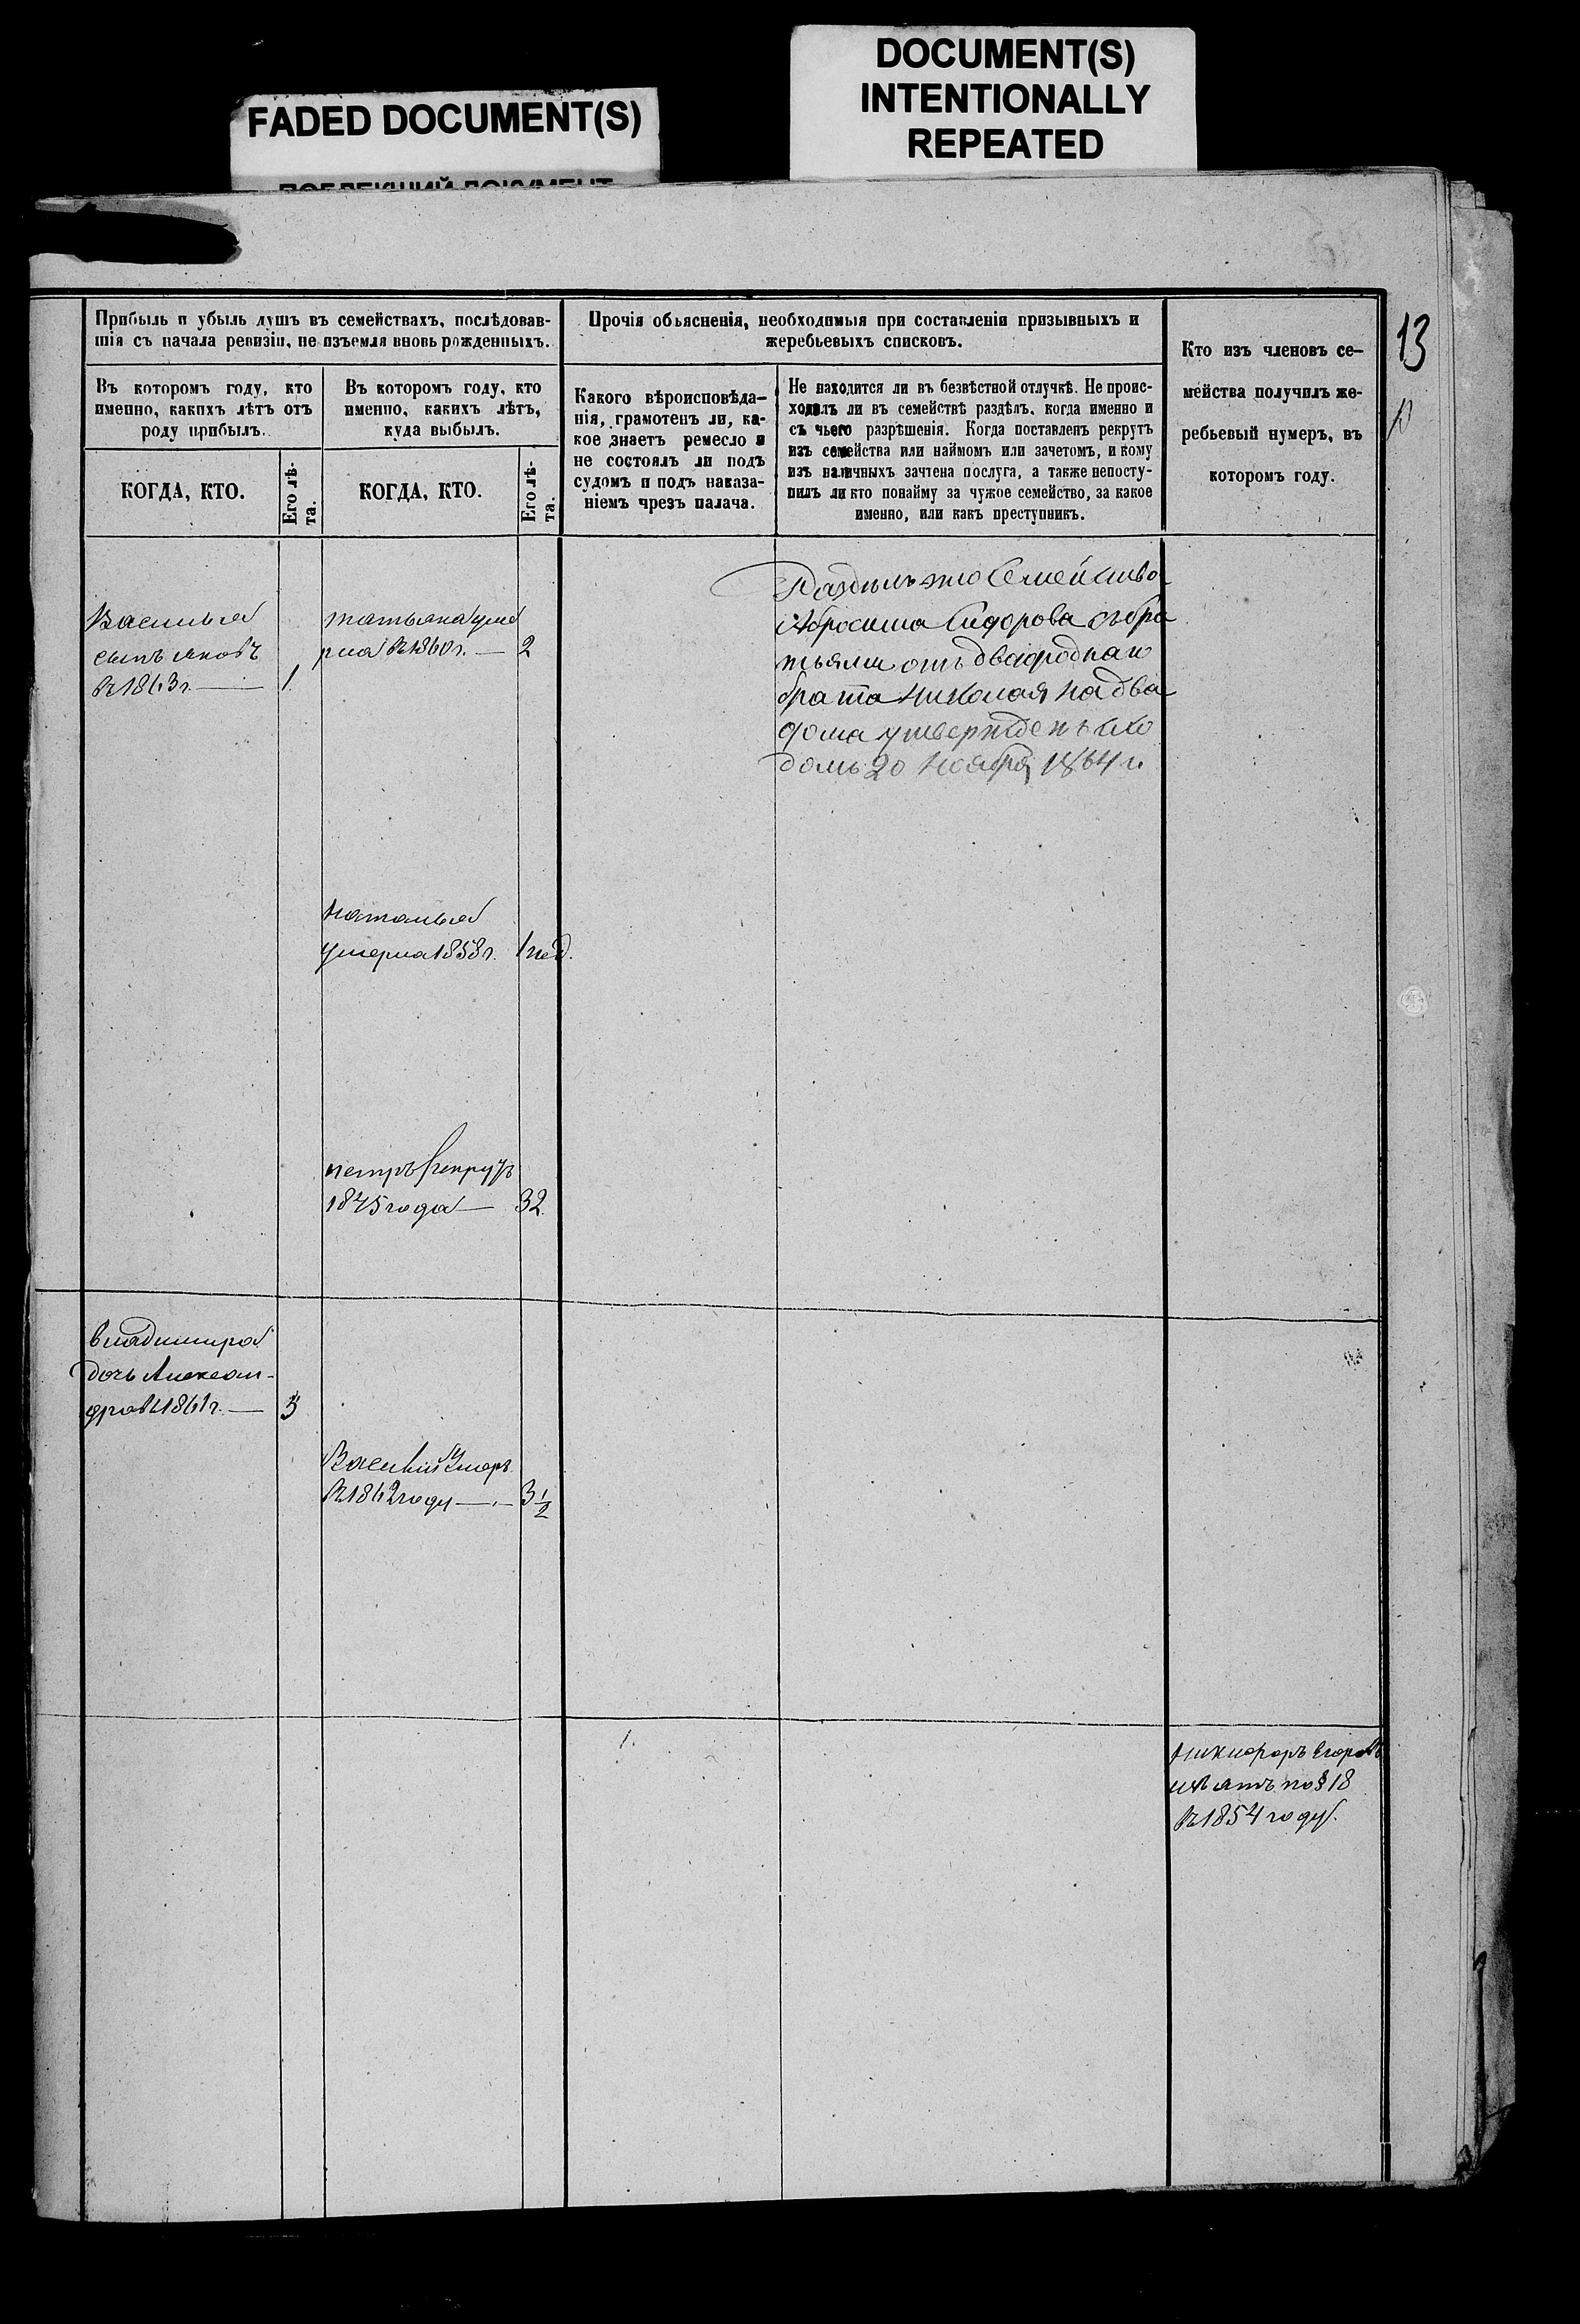 FADED DOCUMENT(S)
DOCUMENT(S)
INTENTIONALLY
REPEATED
Прибыль и убыль душъ въ семействахъ, послѣдовав-
шія съ начала ревизіи, не изъемля вновь рожденныхъ.
Прочія объясненія, необходимыя при составленіи призывныхъ и
жеребьевыхъ списковъ.
Кто изъ членовъ се-
мейства получилъ же-
ребьевый нумеръ, въ
которомъ году.
13
Въ которомъ году, кто
именно, какихъ лѣтъ отъ
роду прибылъ.
Въ которомъ году, кто
именно, какихъ лѣтъ,
куда выбылъ.
Какого вѣроисповѣда-
нія, грамотенъ ли, ка-
кое знаетъ ремесло и
не состоялъ ли подъ
судомъ и подъ наказа-
ніемъ чрезъ палача.
Не находится ли въ безвѣстной отлучкѣ. Не проис-
ходилъ ли въ семействѣ раздѣлъ, когда именно и
съ чьего разрѣшенія. Когда поставленъ рекрутъ
изъ семейства или наймомъ или зачетомъ, и кому
изъ наличныхъ зачтена послуга, а также непосту-
пилъ ли кто понайму за чужое семейство, за какое
именно, или какъ преступникъ.
КОГДА, КТО.
Его лѣ-
та.
КОГДА, КТО.
Его лѣ-
та.
Василья
сынъ Яковъ
въ 1863 г. — 1.
татьяна уме
рла въ 1860 г. — 2
Раздѣлъ это Семейство
Абросима Сидорова съ бра
тьями отъ двоюроднаго
брата Николая на два
дома утвержденъ схо
домъ 20 Ноября 1864 г.
наталья
умерла 1858 г. 1 нед.
петръ рекрутъ
1845 года — 32.
владимира
дочь Алексан-
дра 1861 г. — 3
Василий умеръ
въ 1862 году — 3 1/2
Никифоръ Егоровъ
по § 18
въ 1854 году.